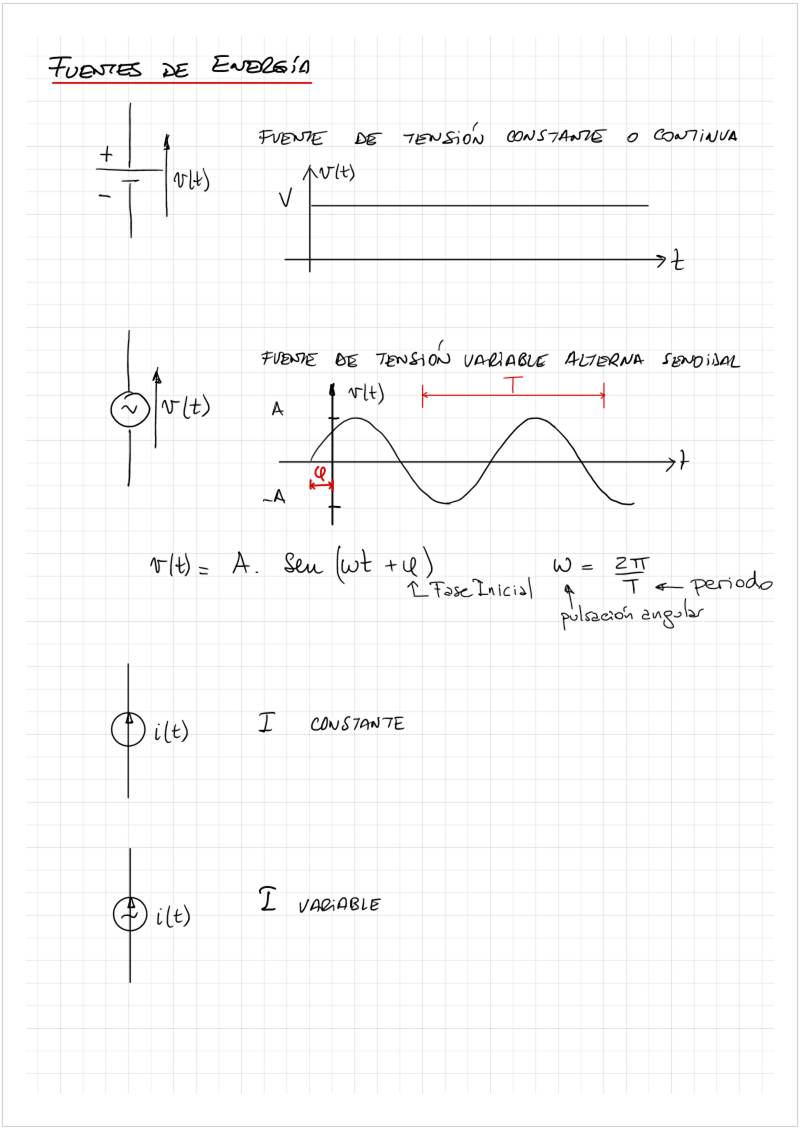 FUENTES DE ENERGÍA
FUENTE DE TENSIÓN CONSTANTE O CONTINUA
+
-
v(t)
v(t)
V
t
FUENTE DE TENSIÓN VARIABLE ALTERNA SENOIDAL
v(t)
v(t)
T
A
t
φ
-A
v(t) = A. Sen (ωt + φ)
Fase Inicial
ω = 2π/T
periodo
pulsación angular
i(t)
I CONSTANTE
i(t)
I VARIABLE